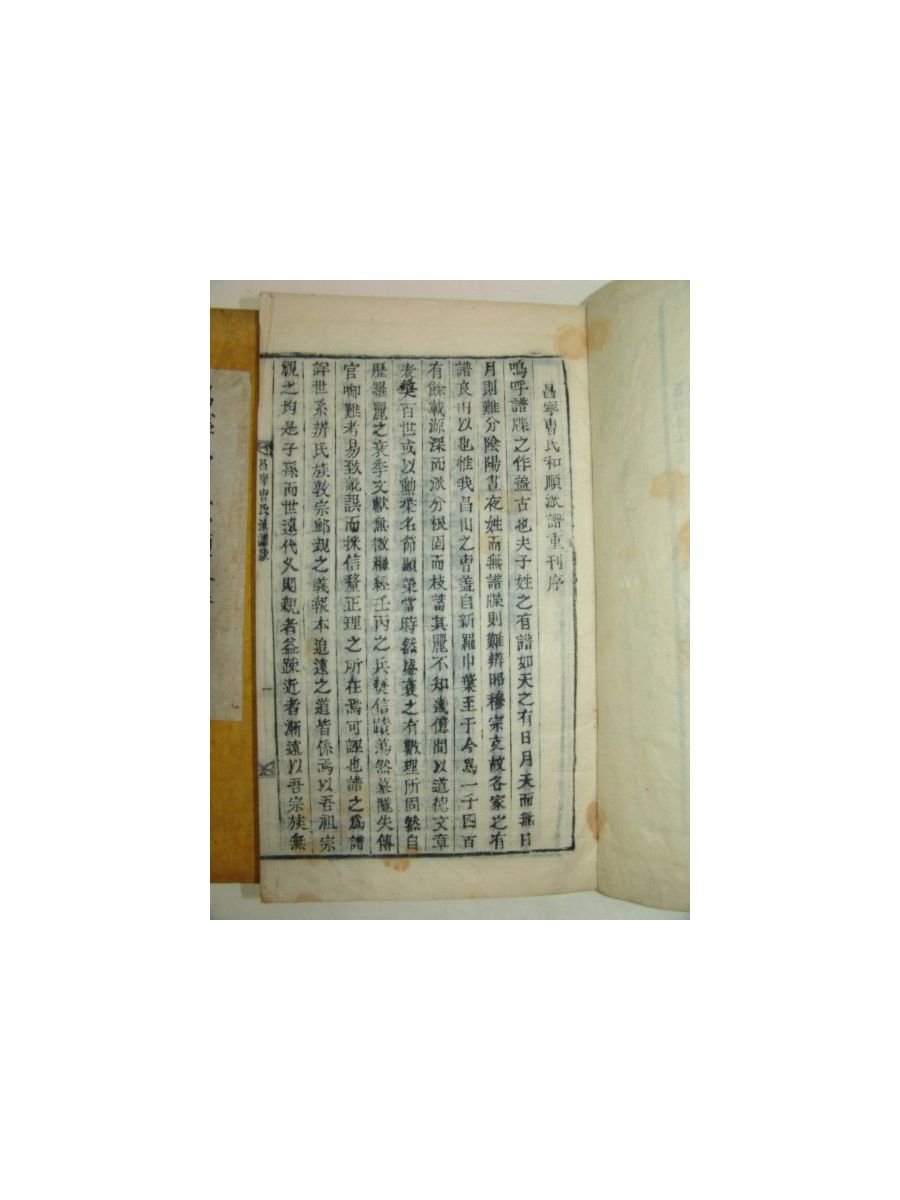 昌寧曺氏和順派譜重刊序
嗚呼譜牒之作盖古也夫子姓之有譜如天之有日月天而無日
月則難分陰陽晝夜姓而無譜牒則難辨昭穆宗支故各家之有
譜良由以也惟我昌山之曺盖自新羅中葉至于今爲一千四百
有餘載源深而派分根固而枝蕃其麗不知幾億間以道德文章
奕百世或以勳業名節顯榮當時然盛衰之有數理所固然自
歷羅麗之衰季文獻無徵繼經壬丙之兵燹信蹟蕩然墓隧失傳
官啣難考易致訛誤而採信釐正理之所在焉可誣也譜之爲譜
詳世系辨氏族敦宗鄉親之義報本追遠之道皆係焉以吾祖宗
視之均是子孫而世遠代久則親者益踈近者漸遠以吾宗族無
昌寧曺氏派譜
一